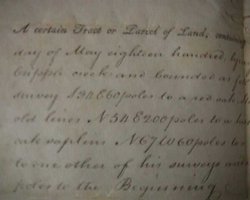 A certain Tract or Parcel of Land,
day of May eighteen hundred
creek and bounded as
survey S 24 E 60 poles to a red oak
old lines N 54 E 200 poles to a
oak saplins N 67 W 60 poles to
to one other of his surveys
poles to the Beginning